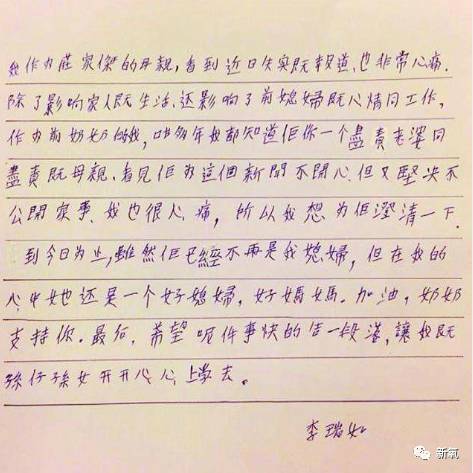 我作為莊家傑的母親，看到近日失实既報道，也非常心痛.
除了影响家人既生活，还影响了前媳婦既心情同工作，
作为前奶奶的我，咁多年我都知道佢係一个盡責老婆同
盡責既母親，看見佢为這個新聞不開心但又堅决不
公開家事，我也很心痛，所以我想为佢澄清一下.
到今日为止，雖然佢已經不再是我媳婦，但在我的
心中她还是一个好媳婦，好媽媽。加油，奶奶
支持你。最后，希望呢件事快的告一段落，讓我既
孫仔孫女开开心心上學去。
李瑞如
新氧